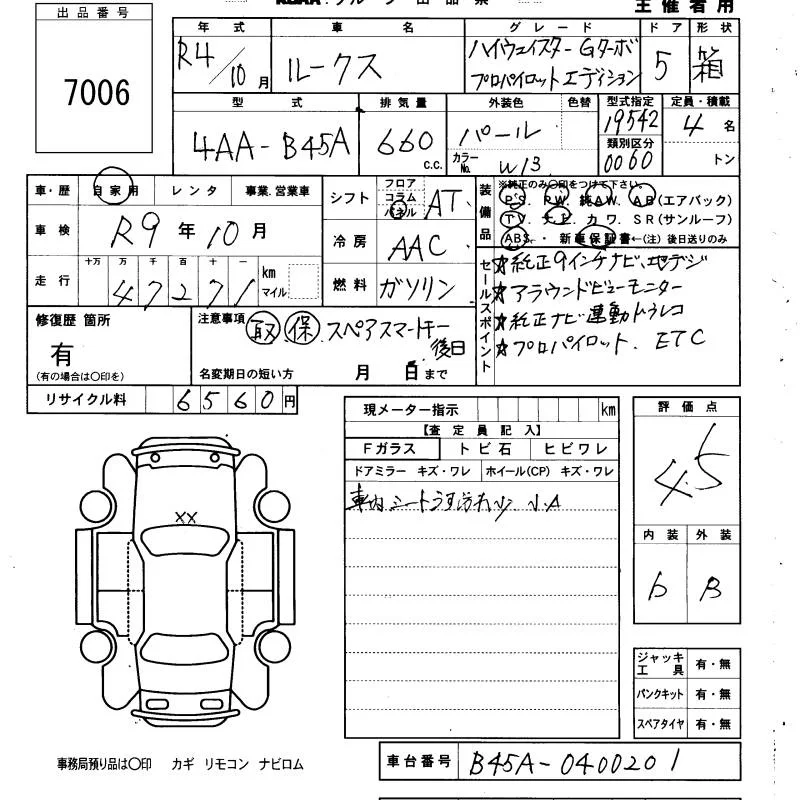 主催者用
出品番号
7006
年式 車名 グレード ドア 形状
R4/10月 ルークス ハイウェイスターGターボ プロパイロットエディション 5 箱
型式 排気量 外装色 色替 型式指定 定員・積載
4AA-B45A 660 c.c. パール カラーNo. W13 19542 4名
類別区分
0060 トン
車・歴 自家用 レンタ 事業.営業車
シフト フロア コラム パネル AT
装備品 ※純正のみ〇印をつけて下さい。
PS. PW. 純AW. AB(エアバック)
TV. ナビ. カワ. SR(サンルーフ)
ABS. 新車保証書←(注) 後日送りのみ
車検 R9年10月
冷房 AAC
走行 十万 万 千 百 十 一 km マイル
47271
燃料 ガソリン
セールスポイント
☆純正9インチナビ、地デジ
☆アラウンドビューモニター
☆純正ナビ連動ドラレコ
☆プロパイロット. ETC
修復歴 箇所
有
(有の場合は〇印を)
注意事項 取 保 スペアスマートキー後日
名変期日の短い方 月 日まで
リサイクル料 6560円
現メーター指示 km
【査定員記入】
Fガラス トビ石 ヒビワレ
ドアミラー キズ・ワレ ホイール(CP) キズ・ワレ
車内シートうす汚れ小 小A
評価点
4.5
内装 外装
b B
XX
ジャッキ工具 有・無
パンクキット 有・無
スペアタイヤ 有・無
事務局預り品は〇印 カギ リモコン ナビロム
車台番号 B45A-0400201